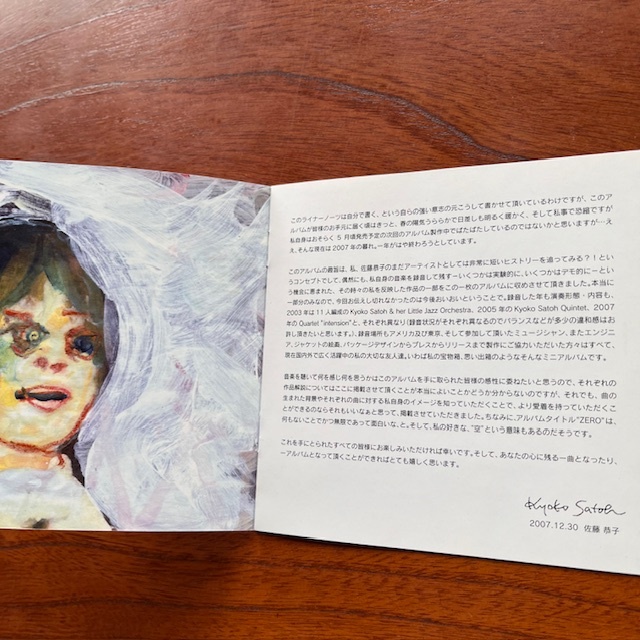 このライナーノーツは自分で書く、という自らの強い意志の元こうして書かせて頂いているわけですが、このア
ルバムが皆様のお手元に届く頃はきっと、春の陽気うららかで日差しも明るく暖かく、そして私事で恐縮ですが
私自身はおそらく5月頃発売予定の次回のアルバム製作中でばたばたしているのではないかと思いますが…え
え、そんな現在は2007年の暮れ。一年がはや終わろうとしています。
このアルバムの趣旨は、私、佐藤恭子のまだアーティストとしては非常に短いヒストリーを追ってみる？！とい
うコンセプトでして、偶然にも、私自身の音楽を録音して残す－いくつかは実験的に、いくつかはデモ的に－とい
う機会に恵まれた、その時々の私を反映した作品の一部をこの一枚のアルバムに収めさせて頂きました。本当に
一部分のみなので、今回お伝えし切れなかったのは今後おいおいということで。録音した年も演奏形態・内容も、
2003年は11人編成のKyoko Satoh & her Little Jazz Orchestra、2005年のKyoko Satoh Quintet、2007
年のQuartet "intension"と、それぞれ異なり(録音状況がそれぞれ異なるのでバランスなどが多少の違和感はお
許し頂きたいと思います。)、録音場所もアメリカ及び東京、そして参加して頂いたミュージシャン、またエンジニ
ア、ジャケットの絵画、パッケージデザインからプレスからリリースまで製作にご協力いただいた方々はすべて、
現在国内外で広く活躍中の私の大切な友人達。いわば私の宝物箱、思い出箱のようなそんなミニアルバムです。
音楽を聴いて何を感じ何を思うかはこのアルバムを手に取られた皆様の感性に委ねたいと思うので、それぞれの
作品解説についてはここに掲載させて頂くことが本当によいことかどうか分からないのですが、それでも、曲の
生まれた背景やそれぞれの曲に対する私自身のイメージを知っていただくことで、より愛着を持っていただくこ
とができるのならそれもいいなぁと思って、掲載させていただきました。ちなみに、アルバムタイトル"ZERO"は、
何もないことでかつ無限であって面白いなと。そして、私の好きな、"空"という意味もあるのだそうです。
これを手にとられたすべての皆様にお楽しみいただければ幸いです。そして、あなたの心に残る一曲となったり、
一アルバムとなって頂くことができればとても嬉しく思います。
Kyoko Satoh
2007.12.30 佐藤 恭子